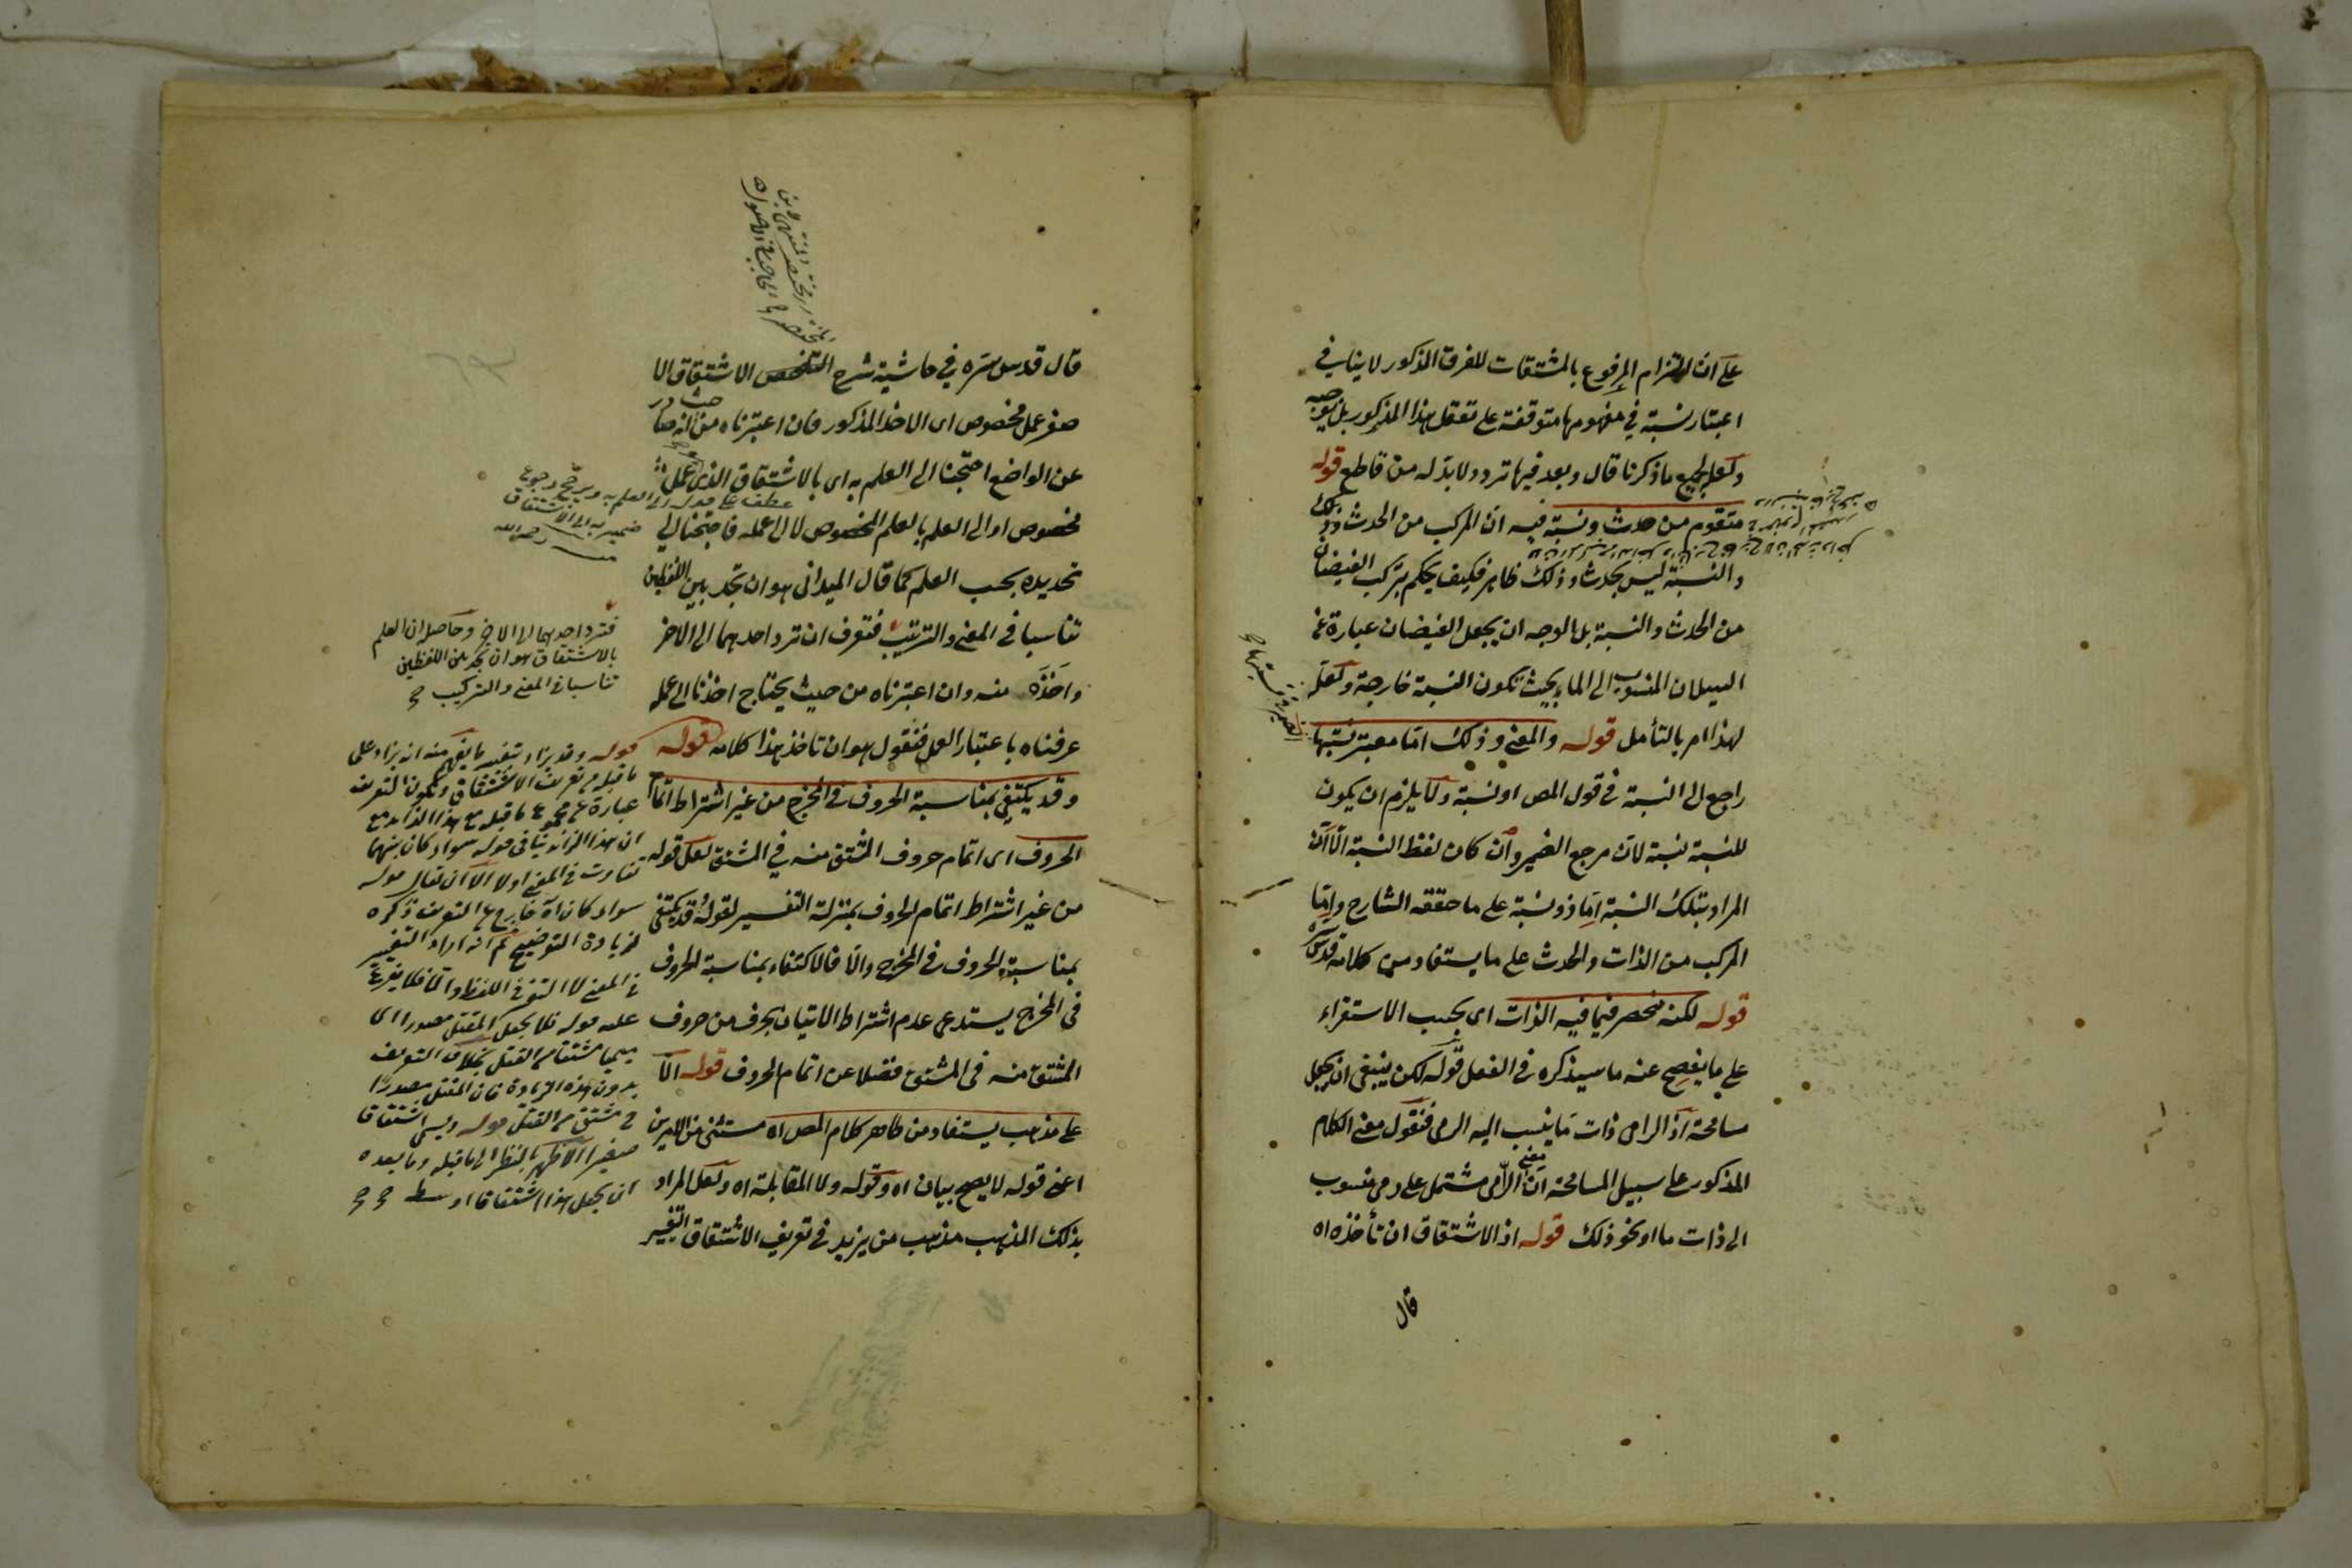 على ان التزام المرفوع بالمشتقات للفرق المذكور لا ينافي
اعتبار نسبة في مفهومها متوقفة على تعقل هذا المذكور بل يوجبه
ولعل لجميع ما ذكرنا قال وبعد فيها تردد ولا بد له من قاطع قوله
متقوم من حدث ونسبة فيه ان المركب من الحدث
والنسبة ليس بحدث وذلك ظاهر فكيف يحكم بتركب الفيضان
من الحدث والنسبة بل الوجه ان يجعل الفيضان عبارة عن
السيلان المنسوب الى الماء بحيث تكون النسبة خارجة ولعله
لهذا امر بالتأمل قوله والمعنى وذلك اما معتبر نسبتها
راجع الى النسبة في قول المص او نسبة ولا يلزم ان يكون
للنسبة نسبة لان مرجع الضمير وان كان لفظ النسبة الا ان
المراد بتلك النسبة اما ذو نسبة على ما حققه الشارح واما
المركب من الذات والحدث على ما يستفاد من كلامه قدس سره
قوله لكنه منحصر فيما فيه الذات اى بحسب الاستقراء
على ما يفصح عنه ما سيذكره في الفعل قوله لكن ينبغى ان يجعل
مسامحة اذ الرامى ذات ما ينسب اليه الرمى فنقول معنى الكلام
المذكور على سبيل المسامحة ان معنى الرامى مشتمل على رمى منسوب
الى ذات ما او نحو ذلك قوله اذ الاشتقاق ان تأخذه اه
قال
قال قدس سره في حاشية شرح التلخص الاشتقاق الا
صغر عمل مخصوص اى الاخذ المذكور فان اعتبرناه من حيث انه صادر
عن الواضع احتجنا الى العلم به اى بالاشتقاق الذى عمل
مخصوص او الى العلم بالعلم المخصوص لا الى عمله فاحتجنا الى
تحديده بحسب العلم كما قال الميدانى هو ان تجد بين اللفظين
تناسبا في المعنى والترتيب فتعرف ان ترد احدهما الى الاخر
واخذه منه وان اعتبرناه من حيث يحتاج اخذنا الى عمله
عرفناه باعتبار العمل فنقول هو ان تاخذ هذا كلامه قوله
وقد يكتفى بمناسبة الحروف في المخرج من غير اشتراط اتمام
الحروف اى اتمام حروف المشتق منه في المشتق لعل قوله
من غير اشتراط اتمام الحروف بمنزلة التفسير لقوله قد يكتفى
بمناسبة الحروف في المخرج والا فالاكتفاء بمناسبة الحروف
في المخرج يستدعى عدم اشتراط الاتيان بحرف من حروف
المشتق منه في المشتق فضلا عن اتمام الحروف قوله الا
على مذهب يستفاد من ظاهر كلام المص اه مستثنى من الامرين
اعنى قوله لا يصح بيان اه وقوله ولا المقابلة اه ولعل المراد
بذلك المذهب مذهب من يزيد في تعريف الاشتقاق التغيير
عطف على قوله الى العلم به ويرجح رجوع
ضمير به الى الاشتقاق
منه رحمه الله
فترد احدهما الى الاخر وحاصل ان العلم
بالاشتقاق هو ان تجد بين اللفظين
تناسبا في المعنى والتركيب
قوله وقد يزاد تغيير ما يفهم منه انه يزاد على
ما قبله من تعريف الاشتقاق ويكون التعريف
عبارة عن مجموع ما قبله مع هذا الزائد مع
ان هذا الزائد ينافى قوله سواء كان بينهما
تفاوت في المعنى اولا الا ان يقال قوله
سواء كان اه خارج عن التعريف ذكره
لزيادة التوضيح ثم انه اراد التغيير
في المعنى لا في اللفظ والا فلا يفرع
عليه قوله فلا يجعل المقتل مصدرا اى
ميميا مشتقا من القتل بخلاف التعريف
بدون هذه الزيادة فان المقتل مصدرا
مشتق من القتل قوله ويسمى اشتقاقا
صغيرا الاظهر بالنظر الى ما قبله وما بعده
ان يجعل هذا اشتقاقا اوسط